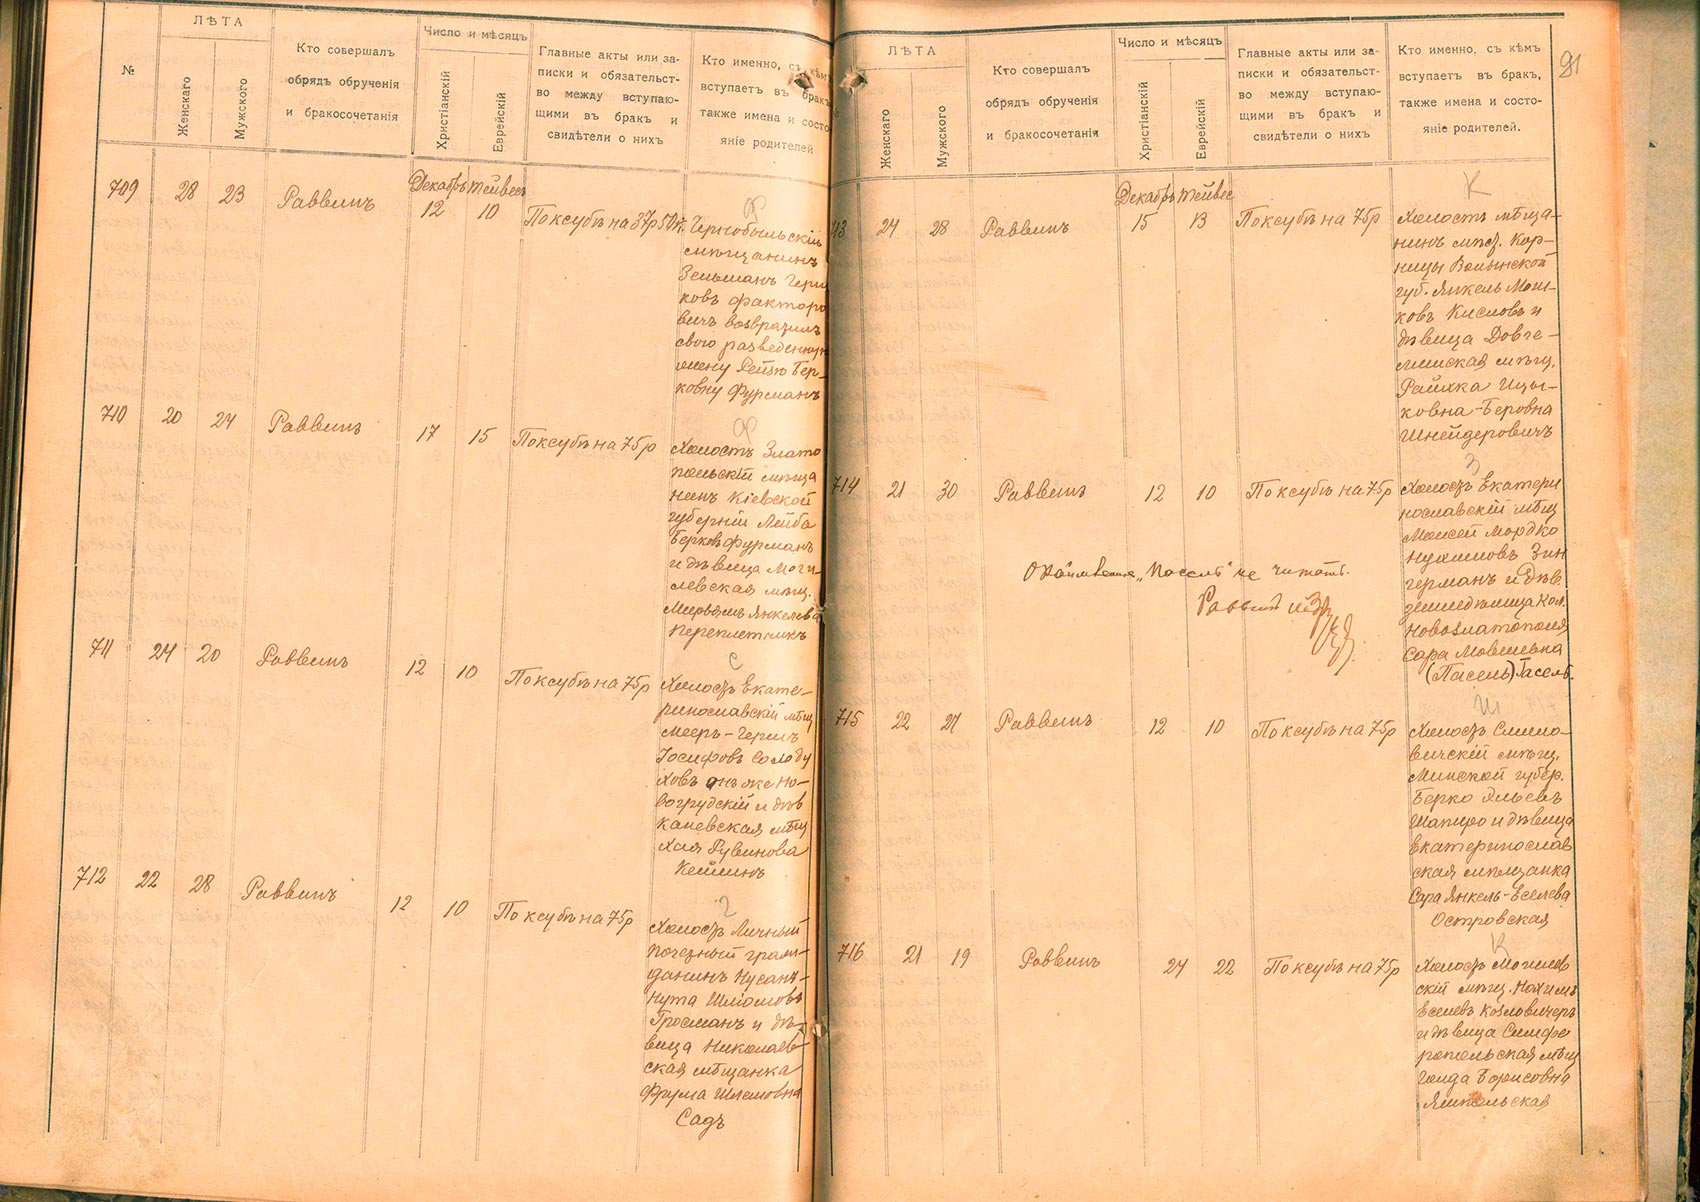 №
ЛѢТА
Женскаго
Мужского
Кто совершалъ
обрядъ обрученія
и бракосочетанія
Число и мѣсяцъ
Христіанскій
Еврейскій
Главные акты или за-
писки и обязательст-
во между вступаю-
щими въ бракъ и
свидѣтели о нихъ
Кто именно, съ кѣмъ
вступаетъ въ бракъ
также имена и состо-
яніе родителей
709 28 23 Раввинъ
Декабрь Тейвесъ
12 10
По ксубѣ на 37р 50к.
Ф
Чернобыльскій
мѣщанинъ
Зельманъ
ковъ Факторо
вичъ возвратилъ
свою разведенную
жену Рейзю Бер-
ковну Фурманъ
710 20 24 Раввинъ 17 15 По ксубѣ на 75р
Ф
Холостъ Злато
польскій мѣща
нинъ Кіевской
губерніи Лейба
Берковъ Фурманъ
и дѣвица Моги-
левская мѣщ.
Мирьямъ Янкелева
Переплетчикъ
711 24 20 Раввинъ 12 10 По ксубѣ на 75р
С
Холостъ Екате-
ринославскій мѣщ
Мееръ-Гершъ
Іосифовъ Солоду
ховъ онъ же Но-
вогрудскій и дѣв
каневская мѣщ
Хая Рувинова
Кейлинъ
712 22 28 Раввинъ 12 10 По ксубѣ на 75р
Г
Холостъ Личный
почетный граж-
данинъ Нусанъ-
Нута Шліомовъ
Гросманъ и дѣ-
вица Николаев-
ская мѣщанка
Фрума Шлемовна
Садъ
91
ЛѢТА
Женскаго
Мужского
Кто совершалъ
обрядъ обрученія
и бракосочетанія
Число и мѣсяцъ
Христіанскій
Еврейскій
Главные акты или за-
писки и обязательст-
во между вступаю-
щими въ бракъ и
свидѣтели о нихъ
Кто именно, съ кѣмъ
вступаетъ въ бракъ,
также имена и состо-
яніе родителей.
13 24 28 Раввинъ
Декабрь Тейвес
15 13
По ксубѣ на 75р
К
Холостъ мѣща-
нинъ мѣст. Кор-
ницы Волынской
губ. Янкель Мош-
ковъ Кисловъ и
дѣвица Довге-
лишская мѣщ.
Райхка Ицы-
ковна-Беровна
Шнейдеровичъ
714 21 30 Раввинъ 12 10 По ксубѣ на 75р
З
Холостъ Екатери
нославскій мѣщ
Моисей Мордко
Нухимовъ Зин
германъ и дѣв.
земледѣлица кол.
Новозлатополя
Сара Мовшевна
(Пасель) Гасель.
"Пасель" не читать.
Раввинъ
715 22 27 Раввинъ 12 10 По ксубѣ на 75р
Ш
Холостъ Смило-
вичскій мѣщ.
Минской губер.
Берко Эльевъ
Шапиро и дѣвица
Екатеринослав
ская мѣщанка
Сара Янкель-Еселева
Островская
716 21 19 Раввинъ 24 22 По ксубѣ на 75р
К
Холостъ Могилев
скій мѣщ. Нохимъ
Еселевъ Козловичеръ
и дѣвица Симфе
ропольская мѣщ
Голда Борисовна
Ямпольская